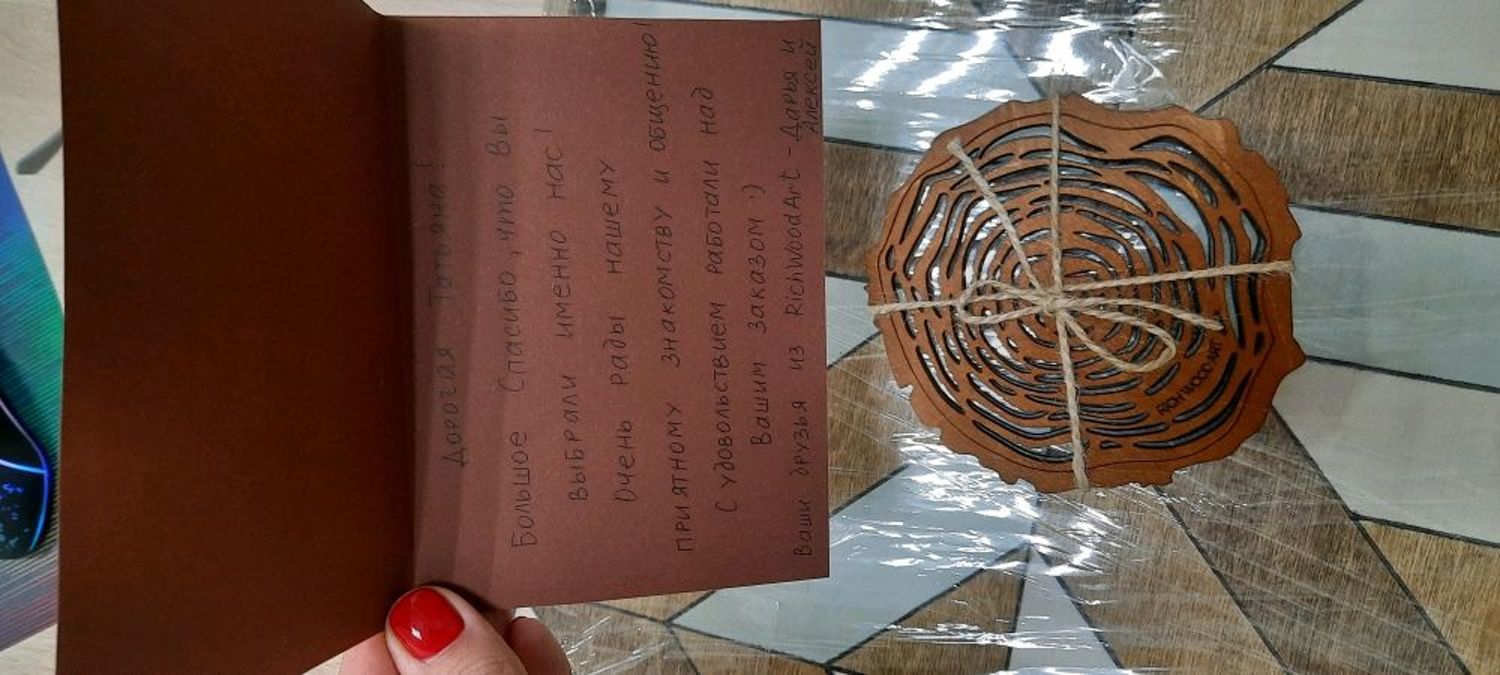 Дорогая Татьяна!
Большое Спасибо, что Вы
выбрали именно нас!
Очень рады нашему
приятному знакомству и общению!
С удовольствием работали над
Вашим заказом :)
Ваши друзья из RichWoodArt - Дарья и
Алексей
RICH WOOD ART